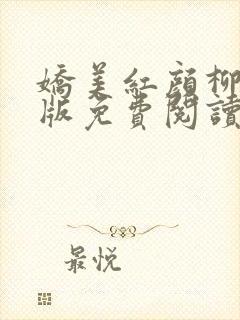 嬌美紅顏柳
版免費閱讀
最悅